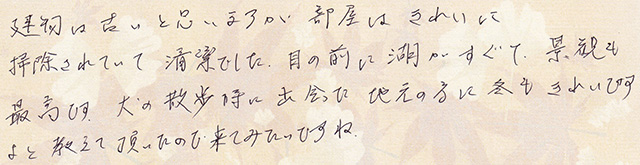 建物は古いと思いますが部屋はきれいに
掃除されていて清潔でした。目の前に湖がすぐで、景観も
最高です。犬の散歩時に出会た地元の方に冬もきれいです
よと教えて頂いたので来てみたいですね。